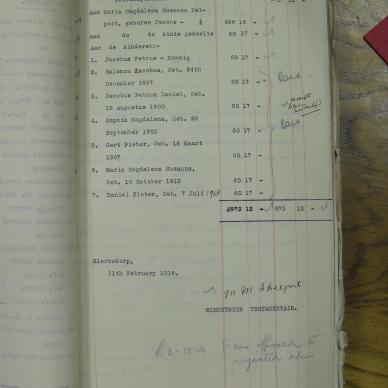 Aan Maria Magdalena Susanna Del-
port, geboren Jacobs - ½ 486 16 -
Aan do do kinds gedeelte 60 17 -
Aan de kinderen:-
1. Jacobus Petrus - Mondig 60 17 -
2. Maleson Jacobus, Geb. 24th
December 1897 60 17 - Paid.
3. Jacobus Petrus Daniel, Geb.
12 Augustus 1900 60 17 -
4. Sophia Magdalena, Geb. 26
September 1903 60 17 - Paid
5. Gert Pieter, Geb. 18 Maart
1907 60 17 -
6. Maria Magdalena Susanna,
Geb. 10 October 1912 60 17 -
7. Daniel Pieter, Geb. 7 Juli 1915 60 17 -
£973 12 - 973 12 -
Klerksdorp,
11th February 1916.
M M S Delport
EXECUTRICE TESTAMENTAIR.